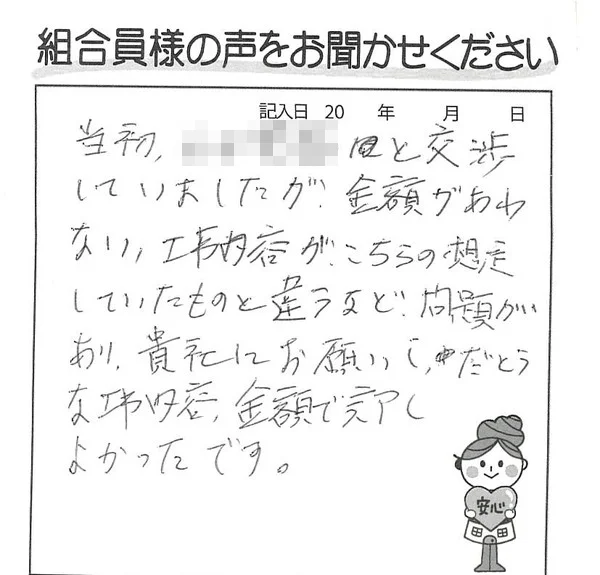 組合員様の声をお聞かせください
記入日 20 年 月 日
当初、 と交渉
していましたが、金額があわ
ない、工事内容が、こちらの想定
していたものと違うなど、問題が
あり、貴社にお願いし、だとう
な工事内容、金額で完了し
よかったです。
安心